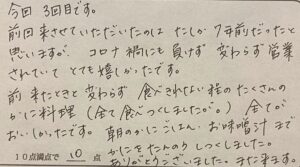 今回 3回目です。
前回来させていただいたのは たしか 7年前だったと
思いますが コロナ禍にも負けず 変わらず営業
されていて とても嬉しかったです。
前来たときと変わらず 食べきれない程の たくさんの
かに料理（全て食べつくしましたが。）全てが
おいしかったです。 朝のかにごはん、お味噌汁まで
かにをたんのうしつくしました。
10点満点で 10 点 ありがとうございました。また来ます。